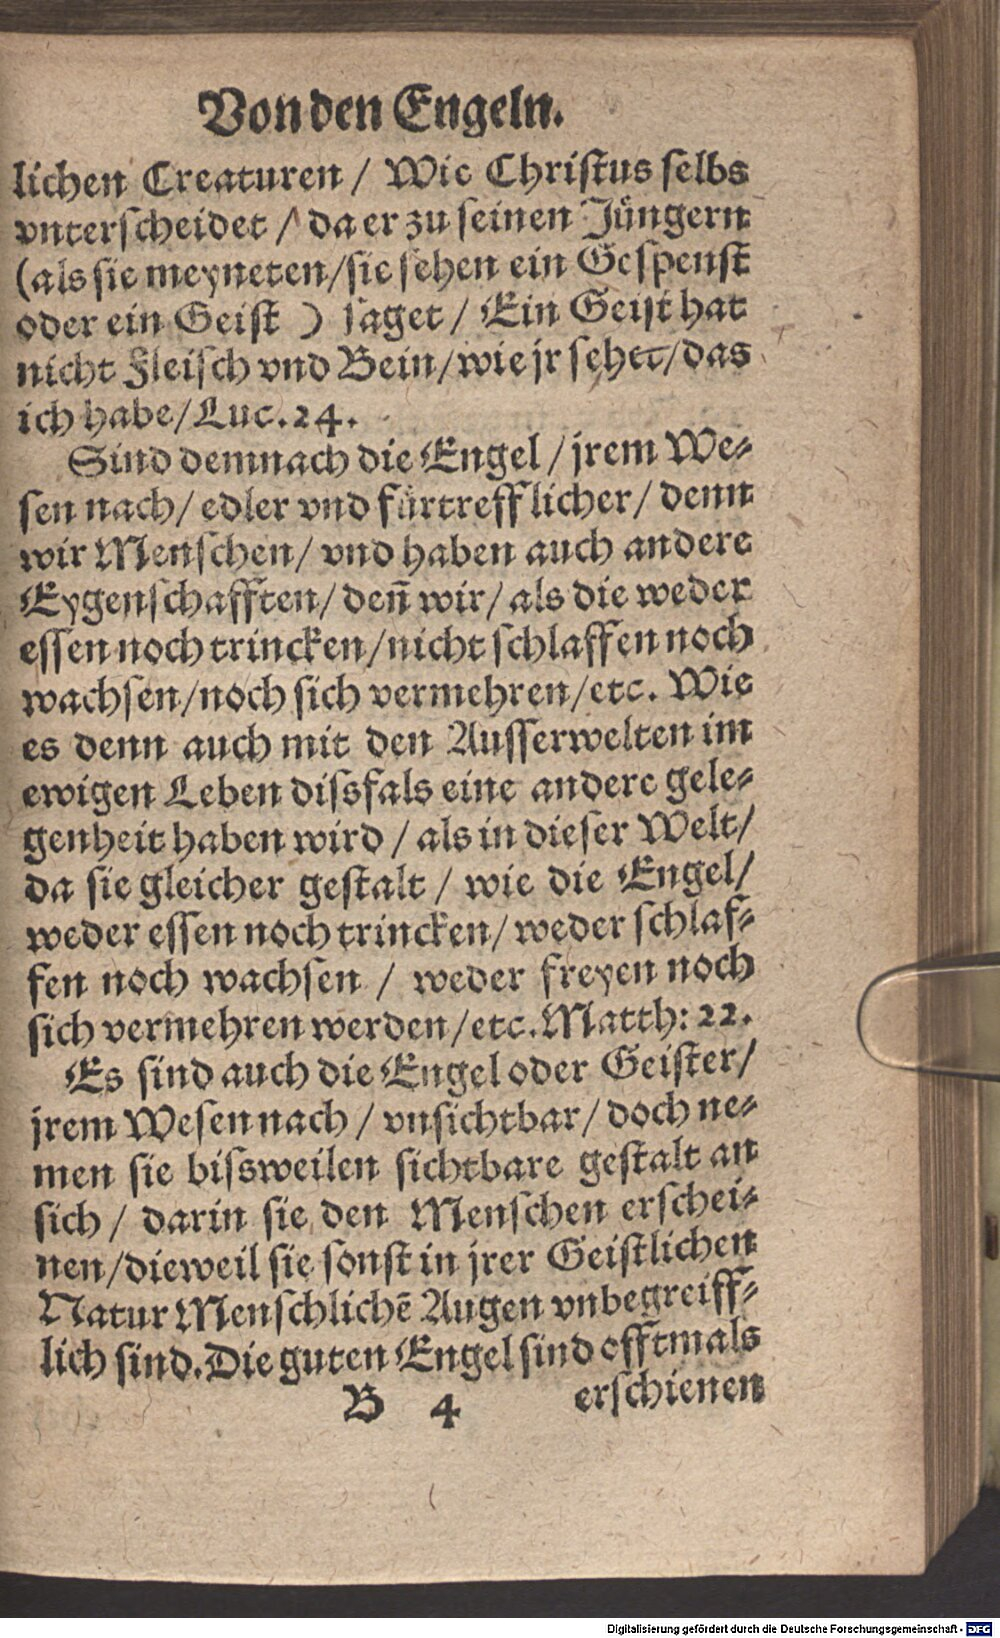 Von den Engeln.
lichen Creaturen / Wie Christus selbs
vnterscheidet / da er zu seinen Jüngern
(als sie meyneten/sie sehen ein Gespenst
oder ein Geist ) saget / Ein Geist hat
nicht Fleisch vnd Bein/wie jr sehet/das
ich habe/Luc.24.
Sind demnach die Engel / jrem We-
sen nach/ edler vnd fürtrefflicher/ denn
wir Menschen/ vnd haben auch andere
Eygenschafften/ deñ wir/ als die weder
essen noch trincken/nicht schlaffen noch
wachsen/noch sich vermehren/etc. Wie
es denn auch mit den Ausserwelten im
ewigen Leben dissfals eine andere gele-
genheit haben wird / als in dieser Welt/
da sie gleicher gestalt / wie die Engel/
weder essen noch trincken/ weder schlaf-
fen noch wachsen / weder freyen noch
sich vermehren werden/etc.Matth: 22.
Es sind auch die Engel oder Geister/
jrem Wesen nach / vnsichtbar/ doch ne-
men sie bissweilen sichtbare gestalt an
sich / darin sie den Menschen erschei-
nen/dieweil sie sonst in jrer Geistlichen
Natur Menschlichē Augen vnbegreiff-
lich sind.Die guten Engel sind offtmals
B 4 erschienen
Digitalisierung gefördert durch die Deutsche Forschungsgemeinschaft - DFG